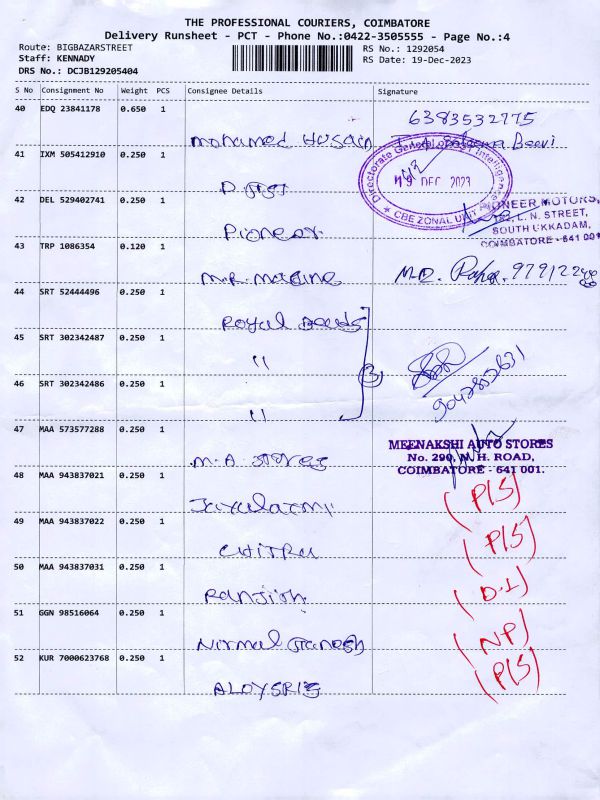 THE PROFESSIONAL COURIERS, COIMBATORE
Delivery Runsheet - PCT - Phone No.:0422-3505555 - Page No.:4
Route: BIGBAZARSTREET
RS No.: 1292054
Staff: KENNADY
RS Date: 19-Dec-2023
DRS No.: DCJB129205404
S No Consignment No Weight PCS Consignee Details Signature
40 EDQ 23841178 0.650 1 6383532775
Mohamed Husain Beevi
41 IXM 505412910 0.250 1
Directorate General Intelligence
19 DEC 2023
★ CBE ZONAL UNIT ★
42 DEL 529402741 0.250 1
Pioneer
PIONEER MOTORS,
L. N. STREET,
SOUTH UKKADAM,
COIMBATORE - 641 001
43 TRP 1086354 0.120 1
M.R. Marine
44 SRT 52444496 0.250 1
Royal Beads
45 SRT 302342487 0.250 1
"
46 SRT 302342486 0.250 1
" 3
47 MAA 573577288 0.250 1
M.A Stores
MEENAKSHI AUTO STORES
No. 290, N. H. ROAD,
COIMBATORE - 641 001.
48 MAA 943837021 0.250 1 (P/S)
Jayalaxmi
49 MAA 943837022 0.250 1 (P/S)
Chitra
50 MAA 943837031 0.250 1 (D.L)
Ranjith
51 GGN 98516064 0.250 1 (NP)
Nirmal
52 KUR 7000623768 0.250 1 (P/S)